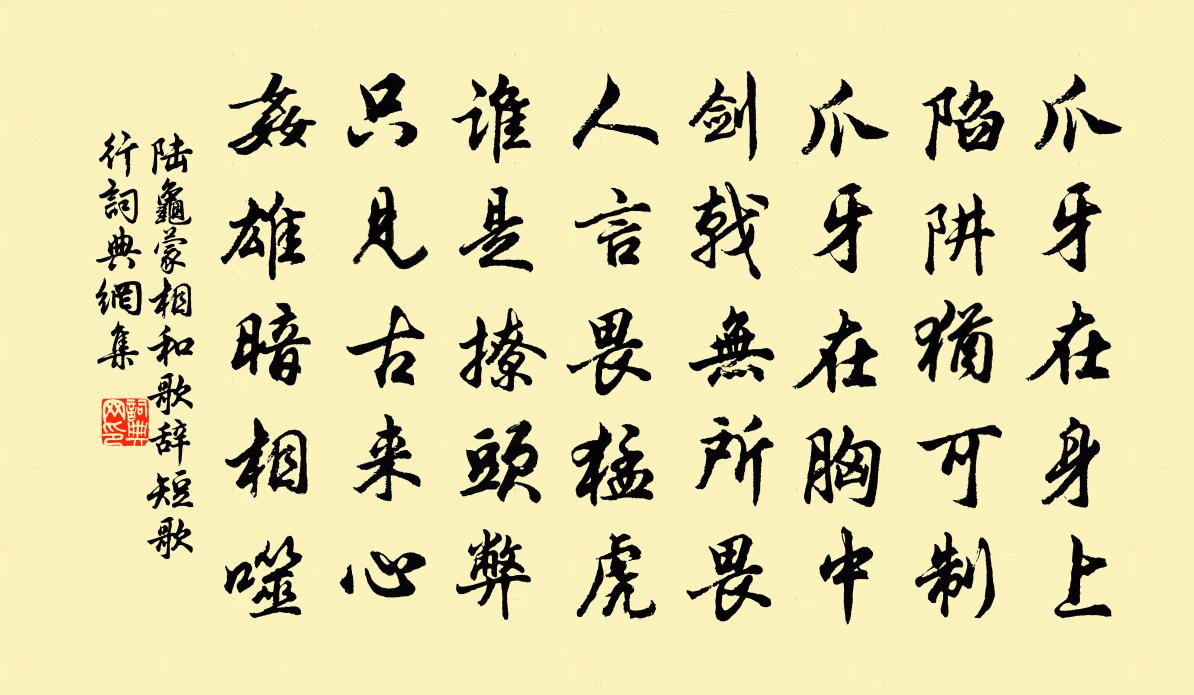 爪牙在身上
陷阱猶可制
爪牙在胸中
剑戟無所畏
人言畏猛虎
谁是撩頭弊
只見古来心
姦雄暗相噬
陆龜蒙相和歌辞短歌
行詞典網集
詞典网印